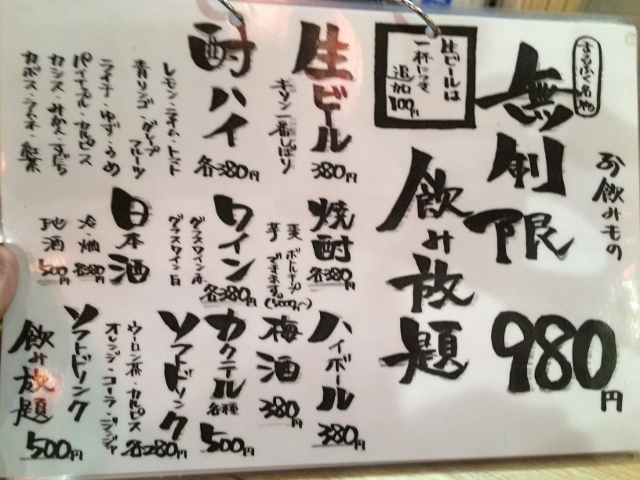 まるふく名物
お飲みもの
無制限
飲み放題
980円
生ビールは
一杯につき
追加100円
生ビール
キリン一番しぼり
380円
酎ハイ
各380円
レモン・ライム・トマト
青リンゴ・グレープフルーツ
ライチ・ゆず・うめ
パイナップル・カルピス
カシス・みかん・すだち
カボス・ラムネ・紅茶
焼酎
各380円
麦
芋
ボトルキープ
できます。
ワイン
グラスワイン赤
グラスワイン白
各380円
日本酒
冷・燗
各380円
地酒
500円
ハイボール
380円
梅酒
380円
カクテル
各種
500円
ソフトドリンク
ウーロン茶・カルピス
オレンジ・コーラ・ジンジャ
各280円
ソフトドリンク
飲み放題
500円